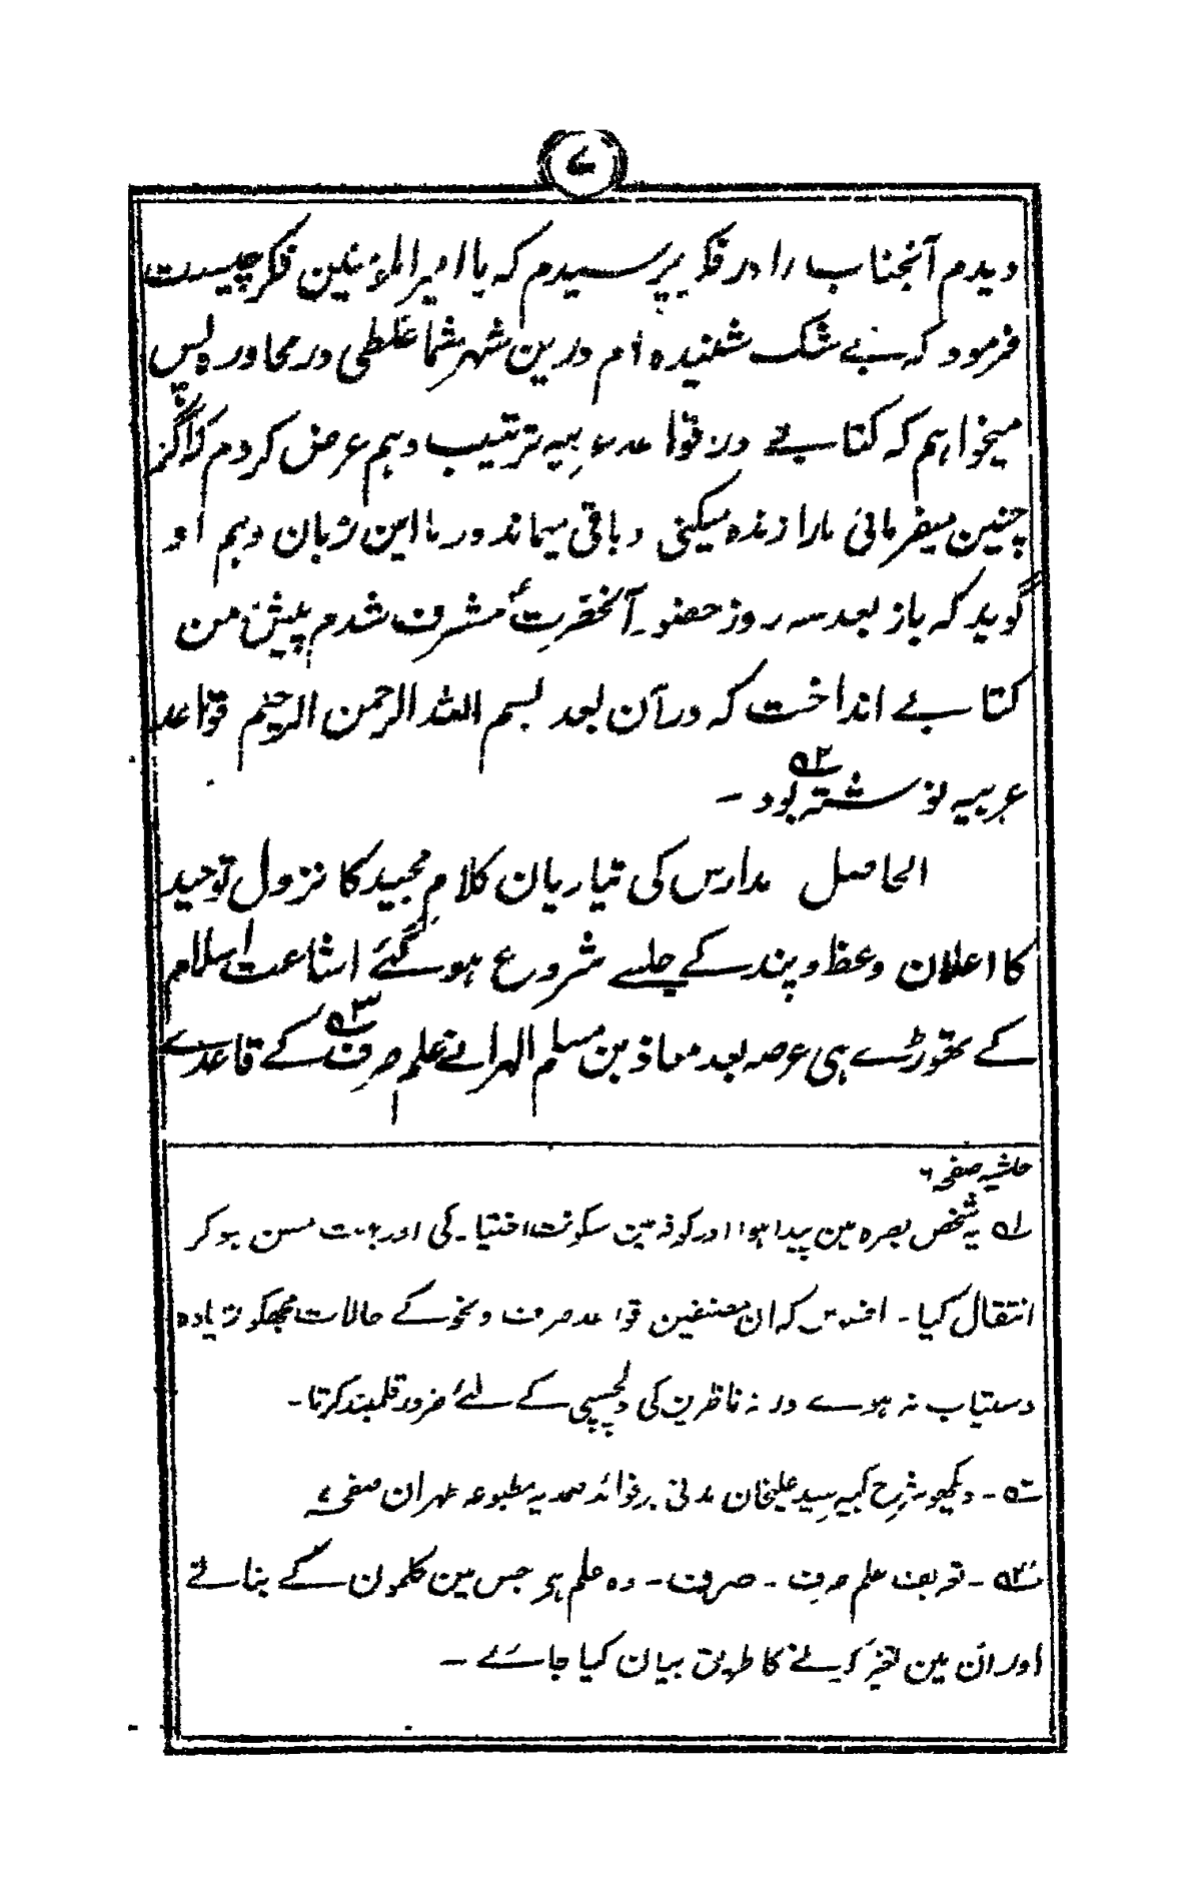 ۷
دیدم آنجناب را در فکر پرسیدم کہ یا امیرالمؤمنین فکر چیست
فرمود کہ بے شک شنیدہ ام درین شہر شما غلطی در محاورہ پس
میخواہم کہ کتابے در قواعد عربیہ ترتیب دہم عرض کردم کہ اگر
چنین میفرمائی مارا زندہ میکنی و باقی میماند در ما این زبان دہم او
گوید کہ باز بعد سہ روز حضور آنحضرتؑ مشرف شدم پیش من
کتابے انداخت کہ در آن بعد بسم اللہ الرحمن الرحیم قواعد
عربیہ نوشتہ بود ۵۲ -
الحاصل مدارس کی تیاریان کلام مجید کا نزول توحید
کا اعلان وعظ و پند کے جلسے شروع ہو گئے اشاعت اسلام
کے تھوڑے ہی عرصہ بعد معاذ بن مسلم الہرا نے علم صرف ۵۳ کے قاعدے
حاشیہ صفحہ ۶
۵۱ یہ شخص بصرہ مین پیدا ہوا اور کوفہ مین سکونت اختیار کی اور بہت مسن ہو کر
انتقال کیا - افسوس کہ ان مصنفین قواعد صرف و نحو کے حالات مجھکو زیادہ
دستیاب نہ ہوے ورنہ ناظرین کی دلچسپی کے لئے ضرور قلمبند کرتا -
۵۲ - دیکھو شرح کبیر سید علیخان مدنی بر فوائد صمدیہ مطبوعہ طہران صفحہ ۷
۵۳ - تعریف علم صرف - صرف - وہ علم ہر جس مین کلمون کے بنانے
اور ان مین تغیر کرنے کا طریق بیان کیا جائے -